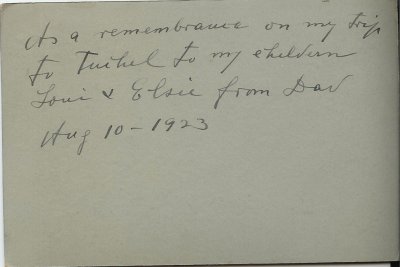 As a remembrance on my trip
to Tuihel to my cheldern
Loui & Elsie from Dad
Aug 10 - 1923